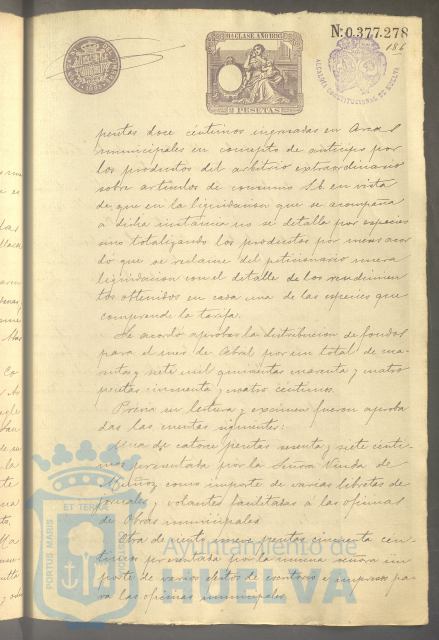 11ª CLASE AÑO 1893
2 PESETAS
Nº 0.377.278
186
ALCALDIA CONSTITUCIONAL DE HUELVA
pesetas doce céntimos ingresadas en Arcas
municipales en concepto de anticipo por
los productos del arbitrio extraordinario
sobre artículos de consumo S.E. en vista
de que en la liquidacion que se acompaña
á dicha instancia no se detalla por especies
sino totalizando los productos por meses acor
dó que se reclame del peticionario nueva
liquidacion con el detalle de los rendimien
tos obtenidos en cada una de las especies que
comprende la tarifa.
Se acordó aprobar la distribucion de fondos
para el mes de Abril por un total de cua
renta y siete mil quinientas cuarenta y cuatro
pesetas cincuenta y cuatro céntimos.
Previa su lectura y exámen fueron aproba
das las cuentas siguientes:
Una de catorce pesetas y siete cénti
mos presentada por la Señora Viuda de
Muñoz como importe de varias libretas de
jornales y volantes facilitadas á las oficinas
de Obras municipales.
Otra de veinte nueve pesetas cincuenta cén
timos presentada por la misma señora im
porte de varios efectos de escritorio é impresos pa
ra las oficinas municipales.
PORTUS MARIS ET TERRAE CUSTODIA
Ayuntamiento de
HUELVA